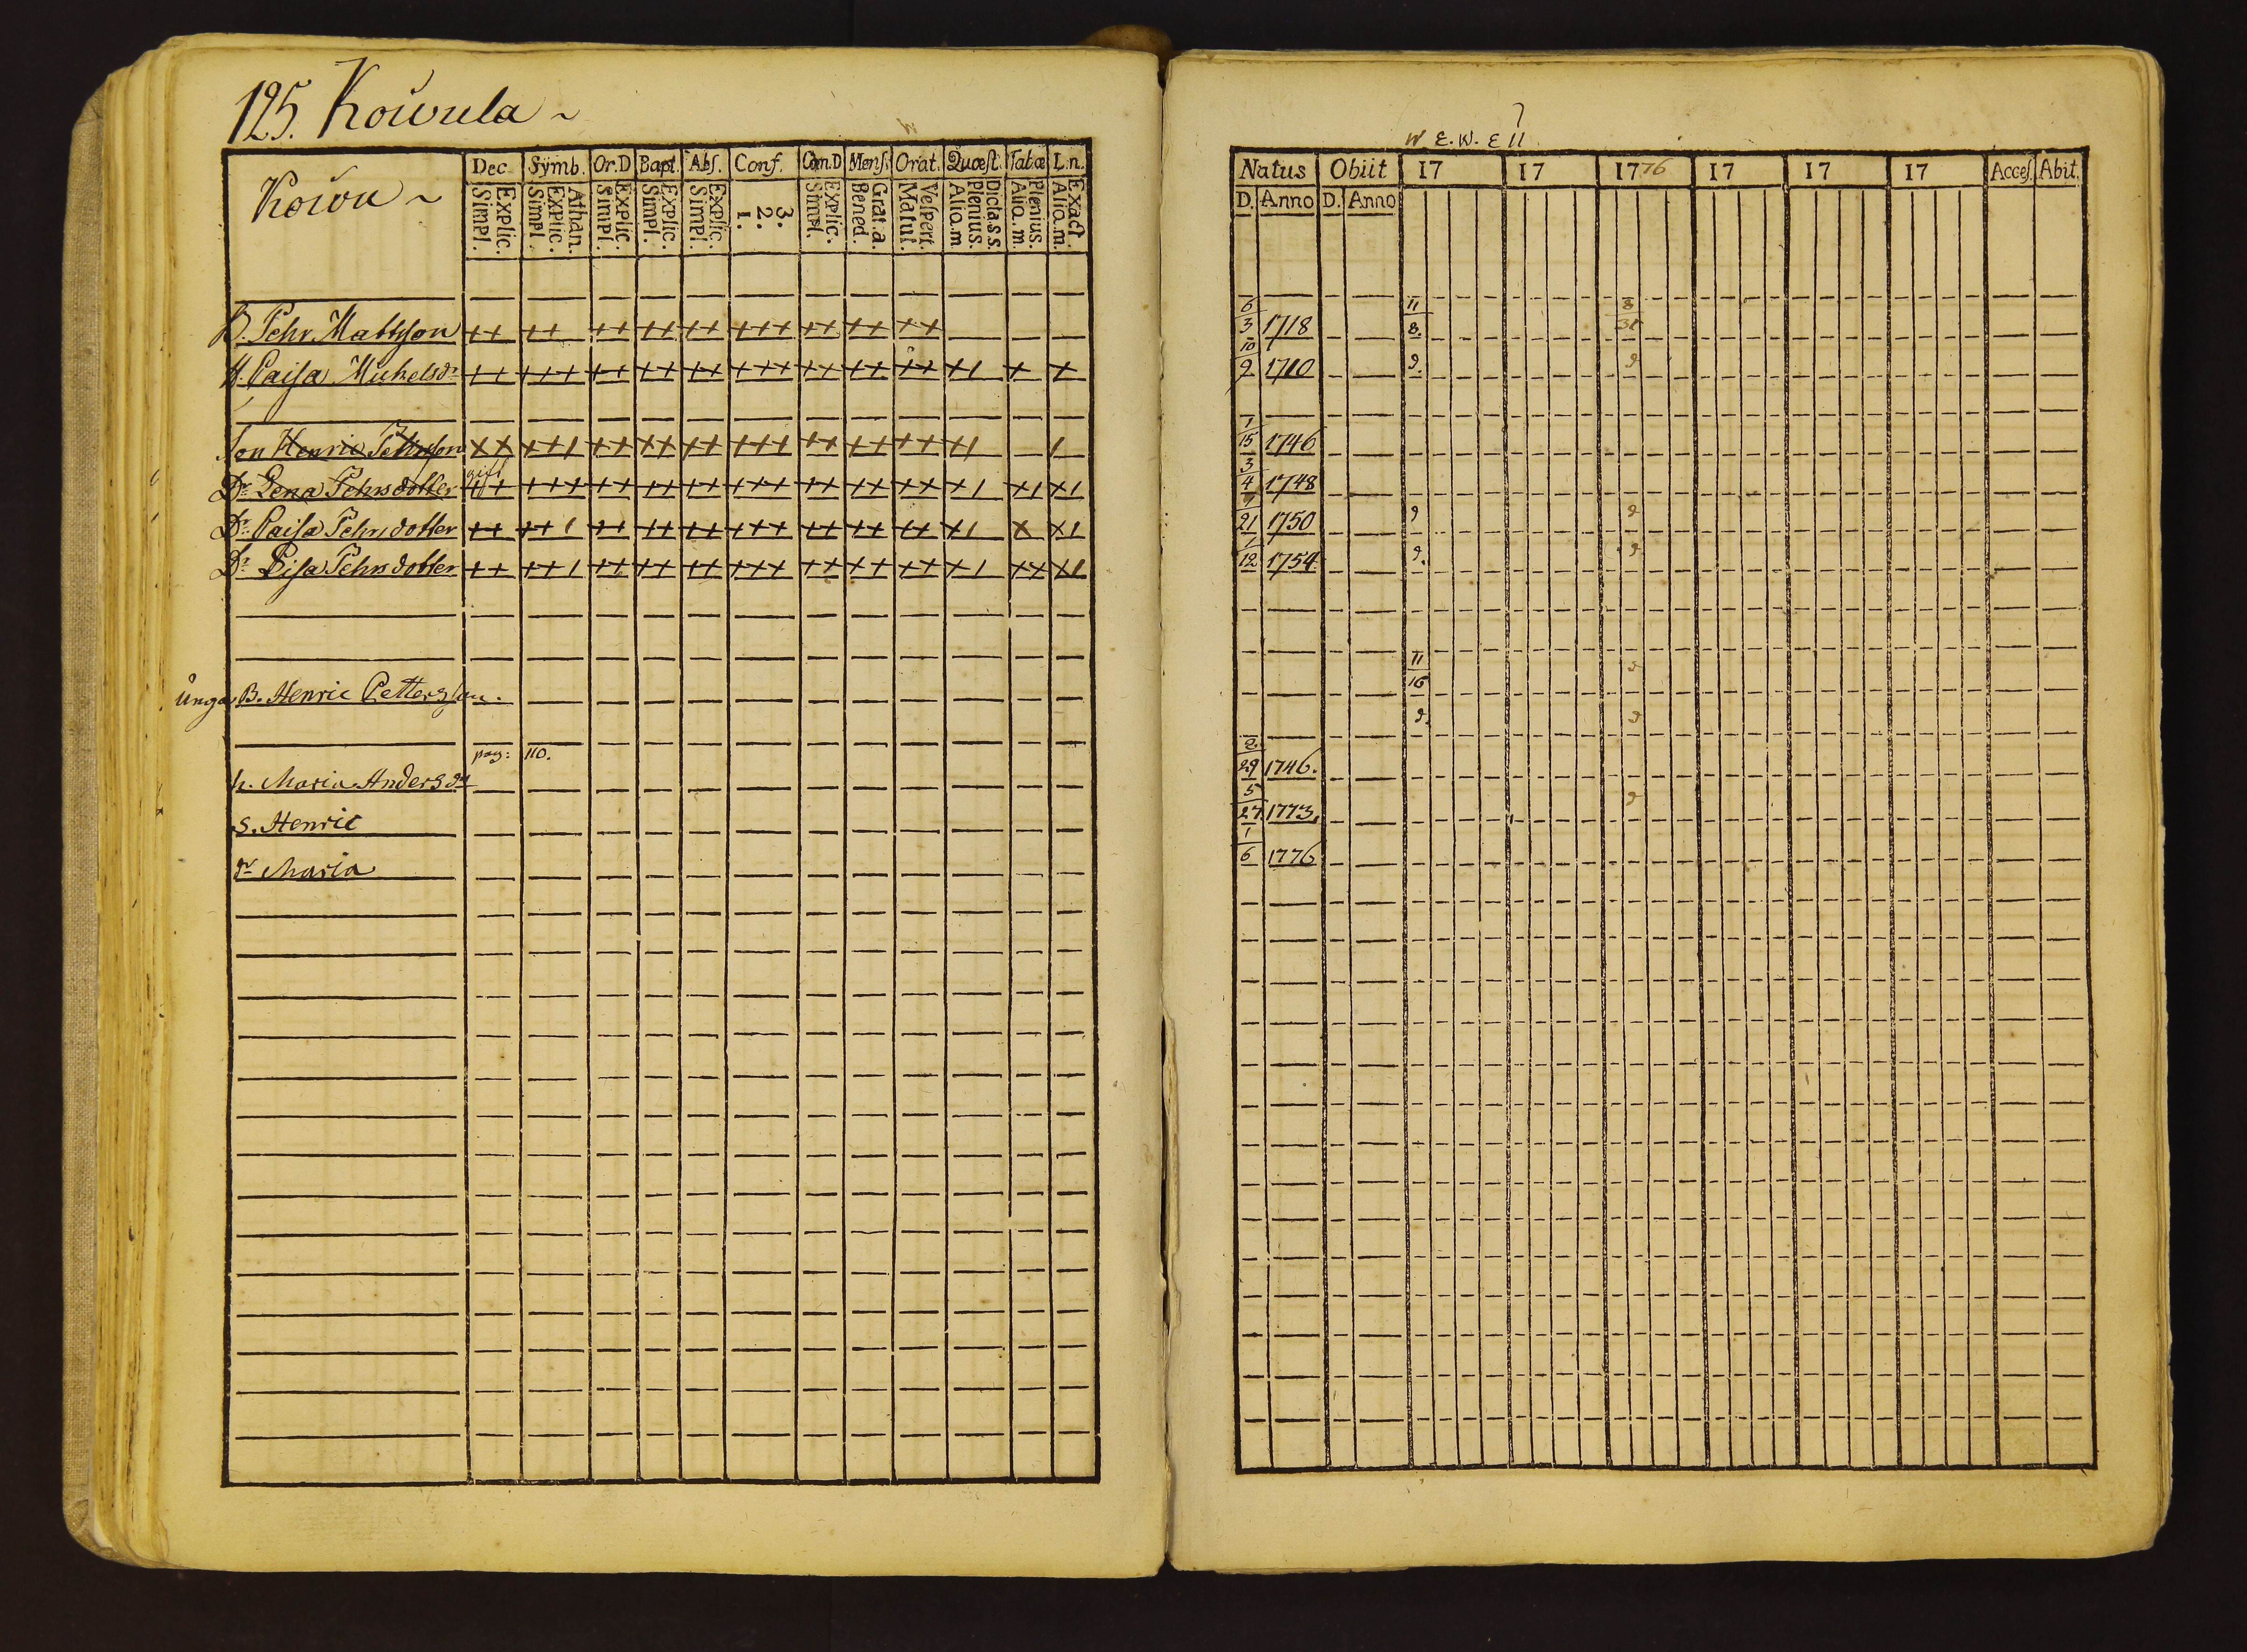 125. Kouvula
Kouvu
Dec. Symb. Or.D Bapt. Abs. Conf. Com.D Mens. Orat. Quæst. Tab.æ L.n.
Simpl. Explic. Simpl. Explic. Athan. Simpl. Explic. Simpl. Explic. Simpl. Explic. 1. 2. 3. Simpl. Explic. Bened. Grat.a. Matut. Vespert. Aliq.m Plenius. Dicta.s.s. Aliq.m. Plenius. Aliq.m. Exact.
B. Pehr Mattsson ++ ++ ++ ++ ++ +++ ++ ++ ++
H. Caisa Michelsdr ++ +++ ++ ++ ++ +++ ++ ++ ++ +1 + +
Son Henric Pehrsson ++ ++1 ++ ++ ++ +++ ++ ++ ++ +1 1
gift
Dr. Lena Pehrsdotter ++ +++ ++ ++ ++ +++ ++ ++ ++ +1 +1 +1
Dr. Caisa Pehrsdotter ++ ++1 ++ ++ ++ +++ ++ ++ ++ +1 + +1
Dr. Lisa Pehrsdotter ++ ++1 ++ ++ ++ +++ ++ ++ ++ +1 ++ +1
unga B. Henric Pettersson.
pag: 110.
h. Maria Andersdr
S. Henric
dr Maria
W E. W. E 11
Natus Obiit 17 17 1776 17 17 17 Acces. Abit.
D. Anno D. Anno
6/3 1718 11/8. 8/31
10/9 1710
1/15 1746
3/4 1748
21 1750
1/12 1754
11/16
2/29 1746.
5/27 1773.
1/6 1776